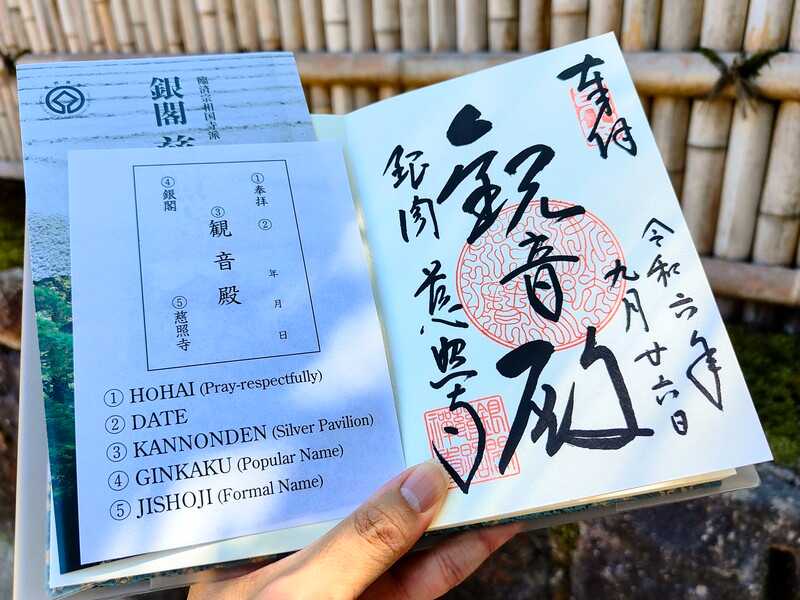 臨済宗相国寺派
銀閣
①奉拝
② 年 月 日
③観音殿
④銀閣
⑤慈照寺
① HOHAI (Pray-respectfully)
② DATE
③ KANNONDEN (Silver Pavilion)
④ GINKAKU (Popular Name)
⑤ JISHOJI (Formal Name)
奉拝
令和六年
九月廿六日
観音殿
銀閣
慈照寺